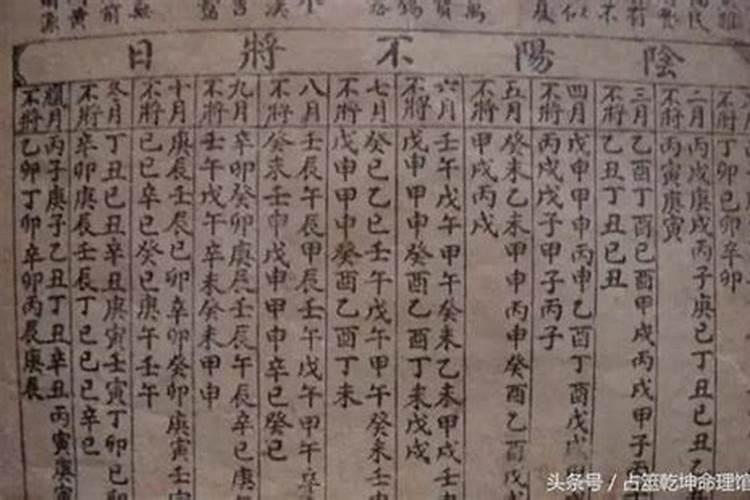 陰陽不將日
不將
丁卯己卯辛卯
二月
丙戌庚戌丙子庚己丁丑己丑
不將
丙寅庚寅
三月
乙酉丁酉己酉甲戌丙戌甲子丙
不將
乙丑丁丑己丑
四月
戊申甲申丙申乙酉丁酉戊戌
不將
丙戌戊子甲子丙子
五月
癸未乙未甲申丙申癸酉乙酉
不將
甲戌丙戌
六月
壬午戊午甲午癸未乙未甲戌壬
不將
戊申甲申癸酉乙酉丁未戊戌
七月
癸巳乙巳壬午戊午甲午癸未
不將
戊申甲申癸酉乙酉丁未
八月
壬辰午辰甲辰壬午戊午甲午
不將
癸未壬申戊申甲申辛巳癸巳
九月
辛卯癸卯庚辰壬辰午辰辛巳
不將
壬午戊午辛未癸未甲申
十月
庚辰壬辰巳卯辛卯癸卯庚寅壬寅
不將
己巳辛巳癸巳庚午壬午
冬月
丁丑己丑辛丑庚寅壬寅丁卯己卯
不將
辛卯庚辰壬辰丁巳己巳辛巳
臘月
丙子庚子乙丑丁丑辛丑丙寅庚寅
不將
乙卯丁卯辛卯丙辰庚辰
头条号 / 占筮乾坤命理馆